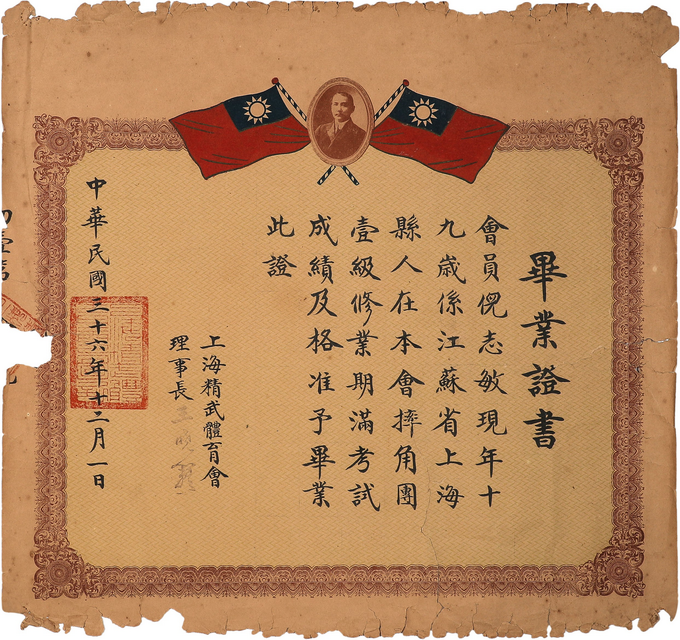 畢業證書
會員倪志敏現年十
九歲係江蘇省上海
縣人在本會摔角團
壹級修業期滿考試
成績及格准予畢業
此證
上海精武體育會
理事長
中華民國三十六年十二月一日